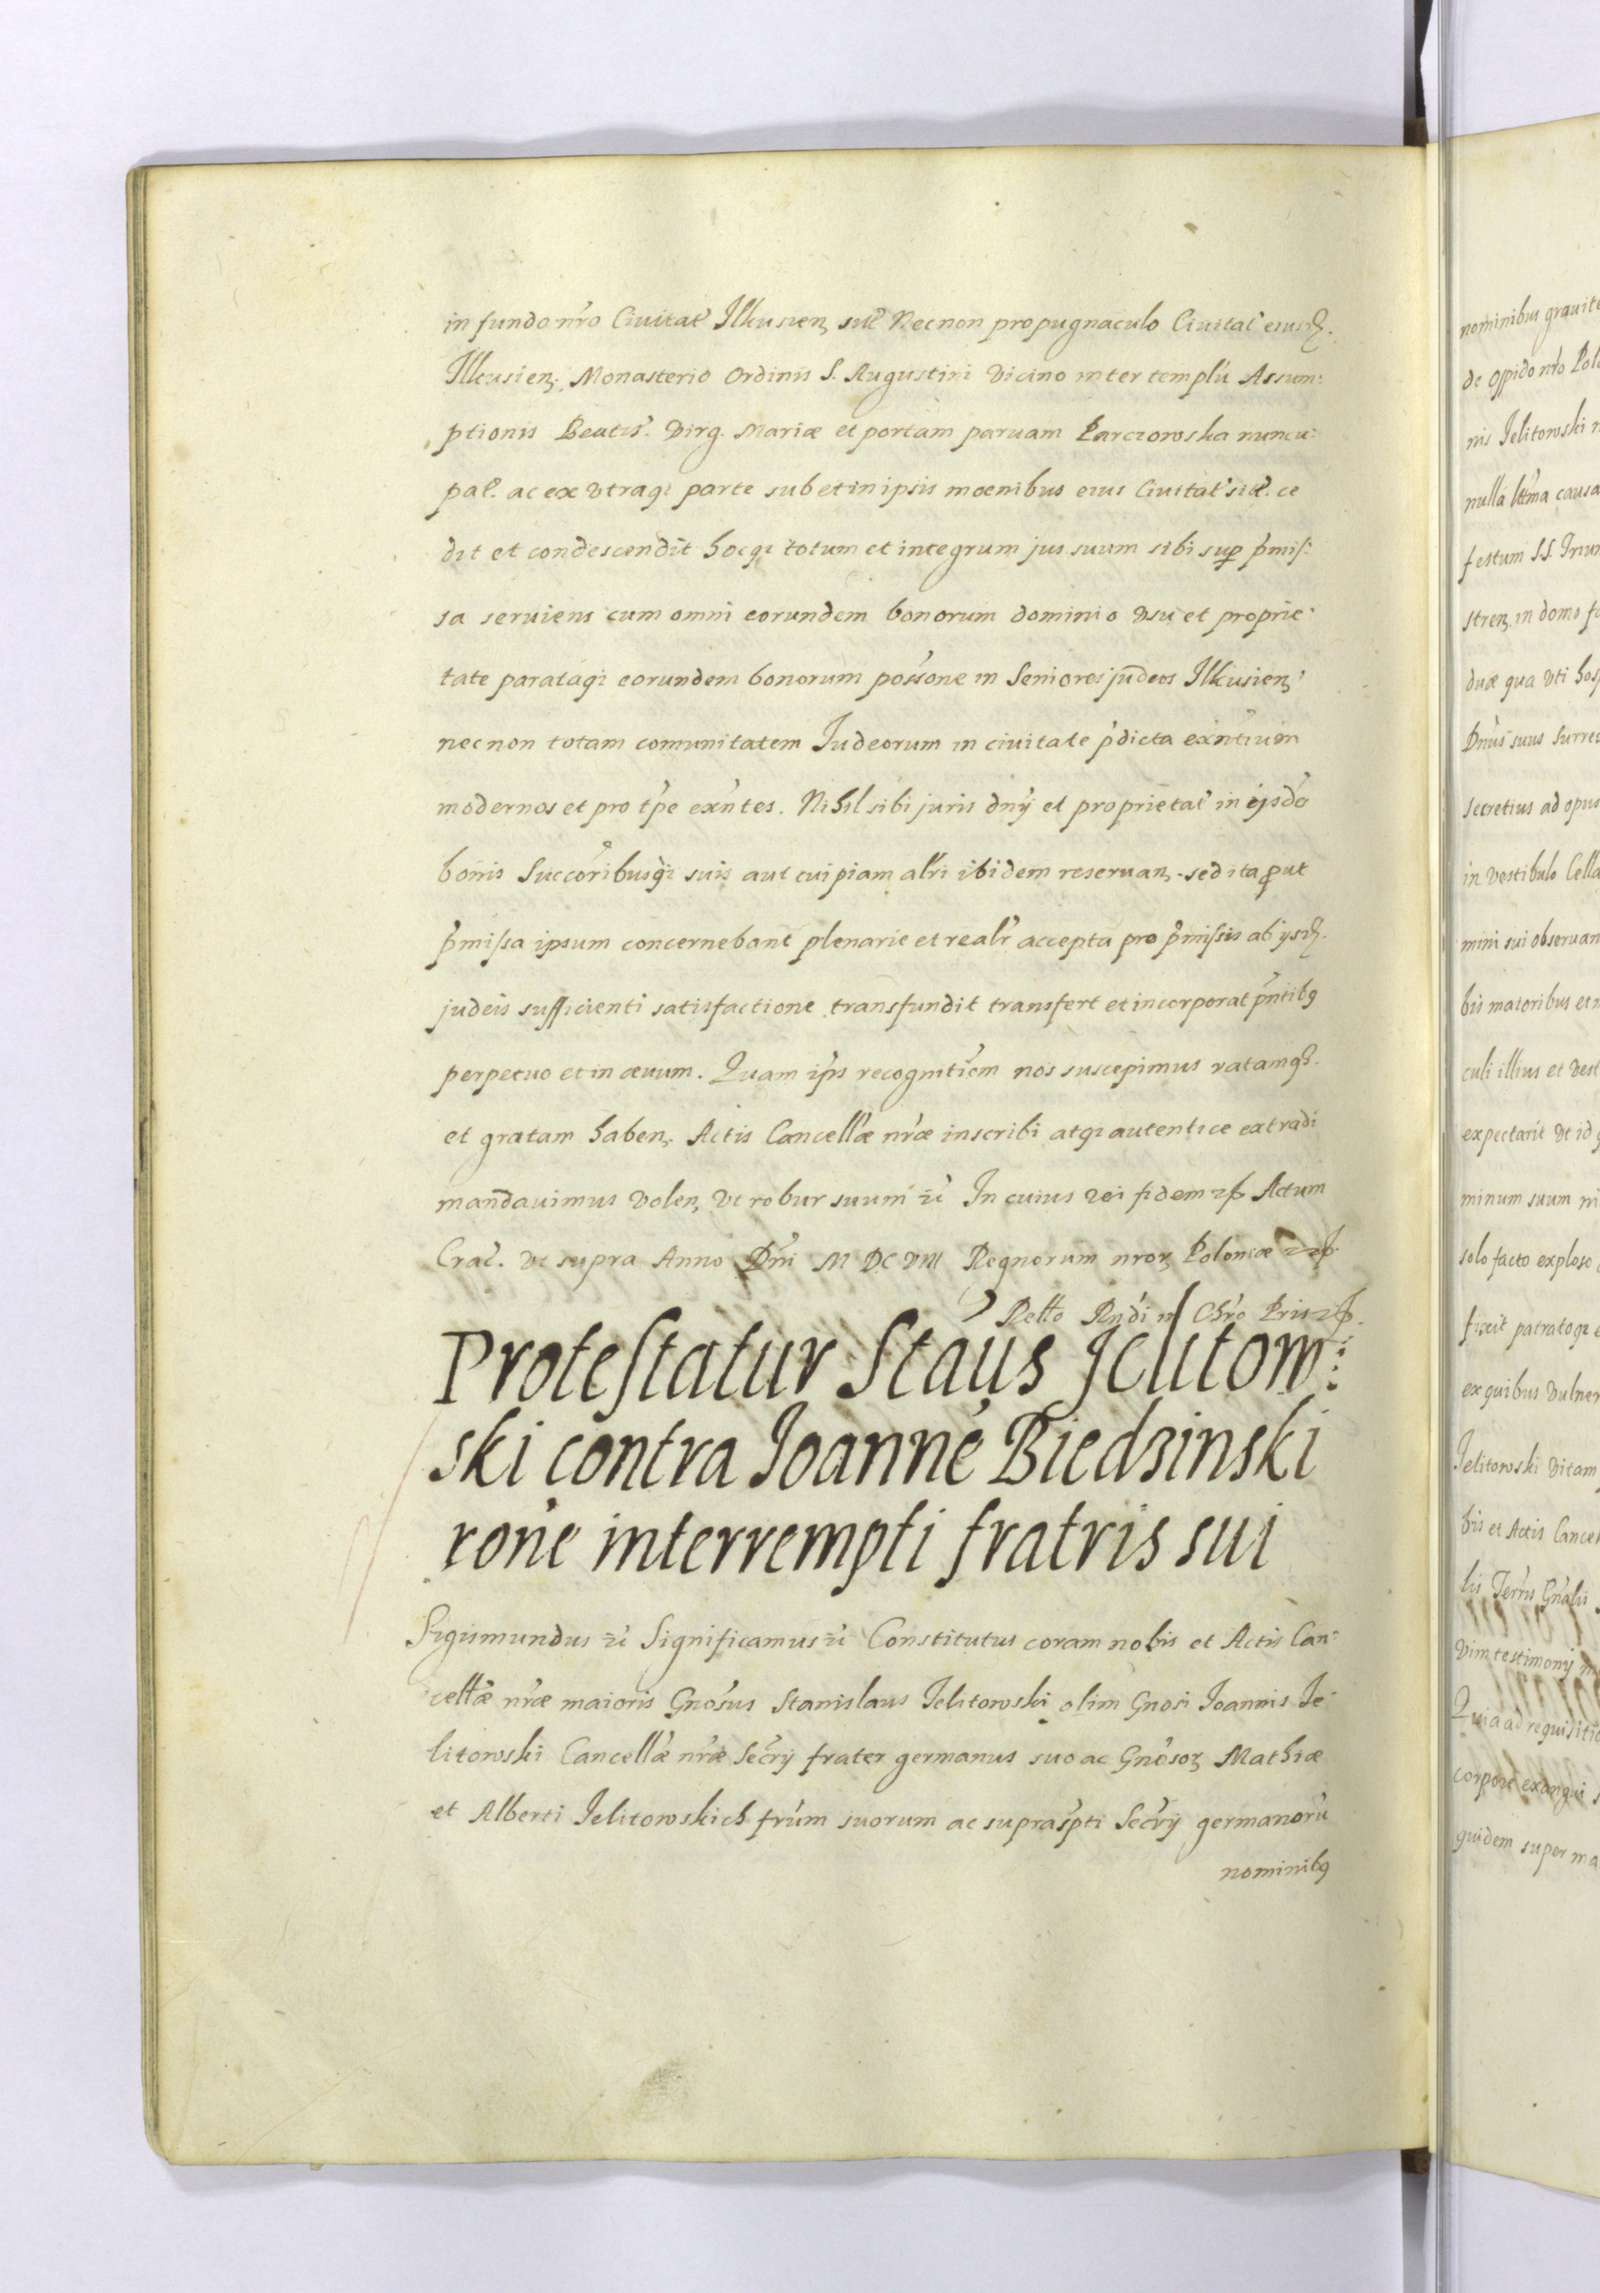 in fundo nr̃o Civitat̃ Ilkusien̨ sit̃ Necnon propugnaculo Civitat̃ eiusd̨.
Ilkusien̨. Monasterio Ordinis S. Augustini vicino inter templũ Assum:
ptionis Beatis̃. Virg. Mariæ et portam paruam Parczowska nuncu:
pat̃. ac ex vtraqȝ parte sub et in ipsis moenibus eius Civitat̃ sit̃. ce
dit et condescendit hocqȝ totum et integrum jus suum sibi sup̱ p̃mis:
sa seruiens cum omni eorundem bonorum dominio vsu et proprie:
tate parataqȝ eorundem bonorum poss̃one in Seniores judeos Ilkusien̨
nec non totam comunitatem Iudeorum in ciuitate p̃dicta exñtium
modernos et pro tp̃e exñtes. Nihil sibi juris dnỹ et proprietat̃ in ijsdẽ
bonis Succõribusqȝ suis aut cuipiam alt̃i ibidem reseruan̨. sed ita ꝓut
p̃missa ipsum concernebant plenarie et realr̃ accepta pro p̃missis ab ysd̨.
judeis sufficienti satisfactione transfundit transfert et incorporat p̃ntibꝰ
perpetuo et in æuum. Quam ip̃s recognitõem nos suscepimus ratamqȝ.
et gratam haben̨. Actis Cancell̃æ nr̃æ inscribi atqȝ autentice extradi
mandauimus volen̨, vt robur suum ꝛc̃ In cuius rei fidem ꝛp Actum
Crac̃. vt supra Anno Dm̃i M DC VIII Regnorum nr̃oꝝ Poloniæ ꝛꝛp.
Rel̃to Rnd̃i in Chr̃o Pris ꝛp.
Protestatur Staũs Jelitow:
ski contra Joannẽ Biedzinski
rõne interrempti fratris sui
Sigismundus ꝛc̃ Significamus ꝛc̃ Constitutus coram nobis et Actis Can:
cell̃æ nr̃æ maioris Gnõsus Stanislaus Jelitowski olim Gnosi Joannis Je:
litowski Cancell̃æ nr̃æ Secr̃ij frater germanus suo ac Gnõsoꝝ Mathiæ
et Alberti Jelitowskich fr̃um suorum ac suprasp̃ti Secr̃ij germanorũ
nominibꝰ